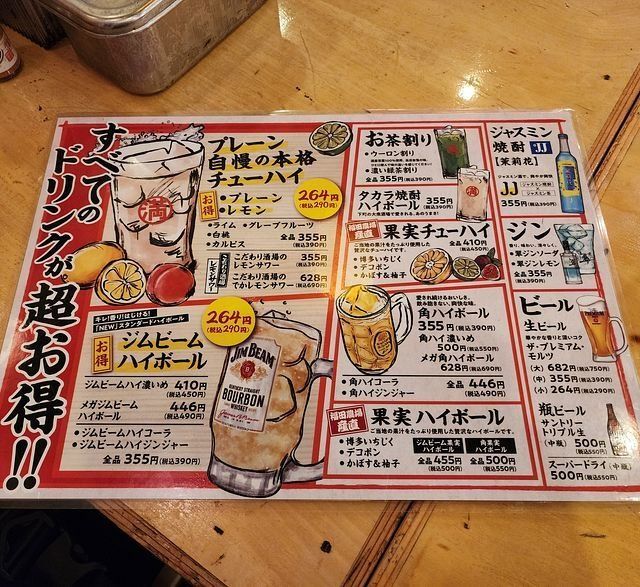 すべての
ドリンクが、超お得!!
満
プレーン
自慢の本格
チューハイ
264円
(税込290円)
お得
・プレーン
・レモン
・ライム ・グレープフルーツ
・白桃
・カルピス
全品 355円
(税込390円)
こだわり酒場の
レモンサワー
355円
(税込390円)
こだわり酒場の
でかレモンサワー
628円
(税込690円)
キレ!香り!はじける!
「NEW」スタンダードハイボール
264円
(税込290円)
お得
ジムビーム
ハイボール
ジムビームハイ濃いめ 410円
(税込450円)
メガジムビーム
ハイボール
446円
(税込490円)
・ジムビームハイコーラ
・ジムビームハイジンジャー
全品 355円(税込390円)
JIM BEAM
KENTUCKY STRAIGHT
BOURBON
WHISKEY
お茶割り
・ウーロン割り
・濃い緑茶割り
全品355円(税込390円)
タカラ焼酎
ハイボール
355円
(税込390円)
下町の大衆酒場で愛される、あのうまさ!
福田農場
産直
果実チューハイ
ご当地の果汁をたっぷり使用した
贅沢なチューハイです。
全品410円
(税込450円)
・博多いちじく
・デコポン
・かぼす&柚子
愛され続けるおいしさ。
飲み飽きない、爽快な味。
角ハイボール
355円(税込390円)
角ハイ濃いめ
500円(税込550円)
メガ角ハイボール
628円(税込690円)
・角ハイコーラ
・角ハイジンジャー
全品 446円
(税込490円)
福田農場
産直
果実ハイボール
ご当地の果汁をたっぷり使用した贅沢なハイボールです。
・博多いちじく
・デコポン
・かぼす&柚子
ジムビーム果実
ハイボール
全品455円
(税込500円)
角果実
ハイボール
全品500円
(税込550円)
ジャスミン
焼酎 JJ
【茉莉花】
JJ
355円(税込390円)
ジン
・翠ジンソーダ
・翠ジンジンジャー
全品355円
(税込390円)
ビール
生ビール
華やかな香りと深いコク
ザ・プレミアム・
モルツ
(大) 682円(税込750円)
(中) 355円(税込390円)
(小) 264円(税込290円)
瓶ビール
サントリー
トリプル生
(中瓶) 500円
(税込550円)
スーパードライ(中瓶)
500円(税込550円)